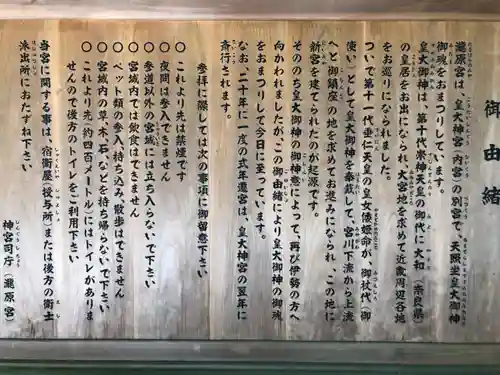 御由緒
瀧原宮は、皇大神宮(内宮)の別宮で、天照坐皇大御神
御魂をおまつりしています。
皇大御神は、第十代崇神天皇の御代に大和(奈良県)
の皇居をお出になられ、大宮地を求めて近畿周辺各地
をお巡りになられました。
ついで第十一代垂仁天皇の皇女倭姫命が、御杖代(御
使い)として皇大御神を奉戴して、宮川下流から上流
へと御鎮座の地を求めてお進みになられ、この地に
新宮を建てられたのが起源です。
そののち皇大御神の御神意によって、再び伊勢の方へ
向かわれましたが、この御由緒により皇大御神の御魂
をおまつりして今日に至っています。
なお、二十年に一度の式年遷宮は、皇大神宮の翌年に
斎行されます。
参拝に際しては次の事項に御留意下さい
○ これより先は禁煙です
○ 夜間は参入できません
○ 参道以外の宮域には立ち入らないで下さい
○ 宮域内では飲食はできません
○ ペット類の参入、持ち込み、散歩はできません
○ 宮域内の草・木・石などを持ち帰らないで下さい
○ これより先(約四百メートル)にはトイレがありま
せんので後方のトイレをご利用下さい
当宮に関する事は、宿衛屋(授与所)または後方の衛士
派出所におたずね下さい
神宮司庁(瀧原宮)